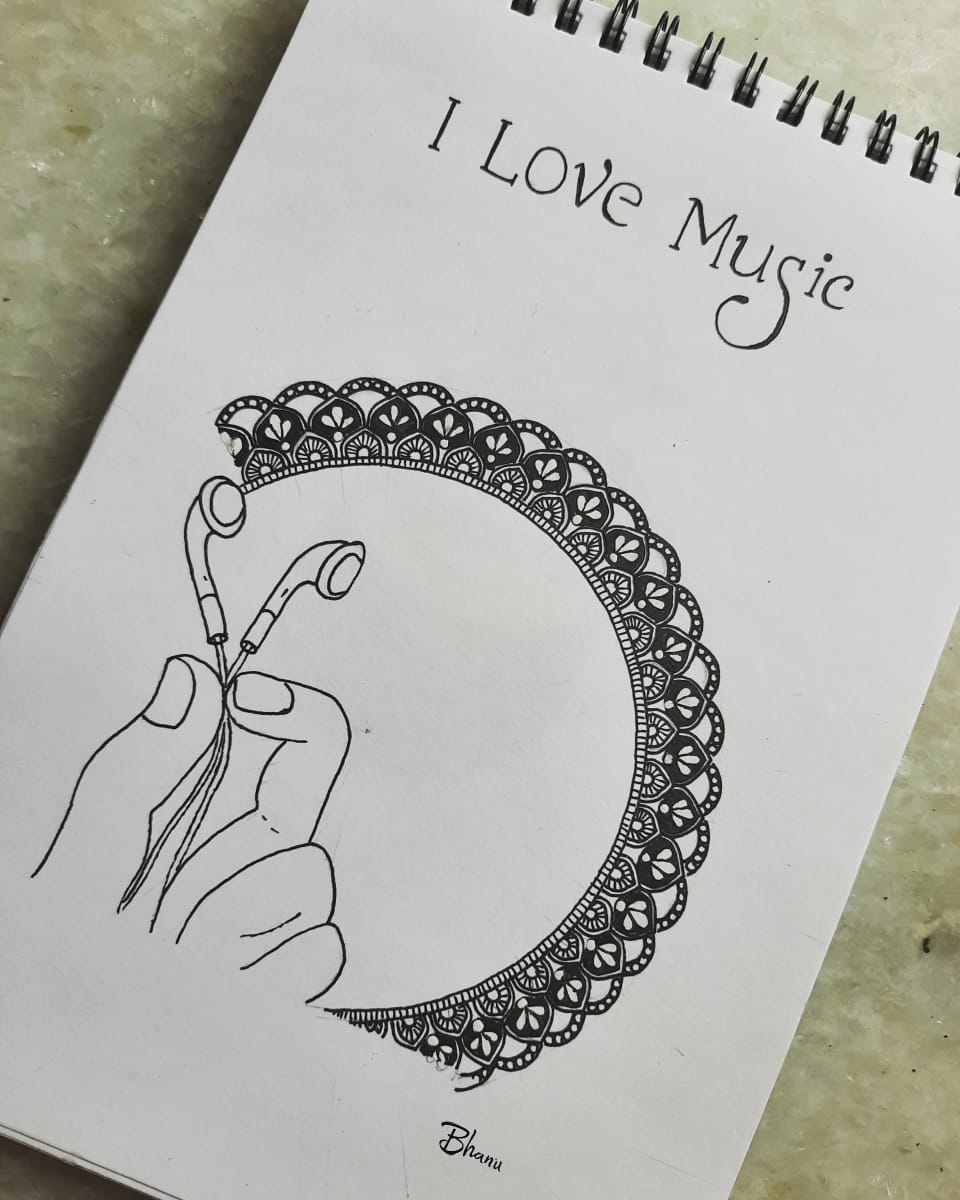 I Love Music
Bhanu